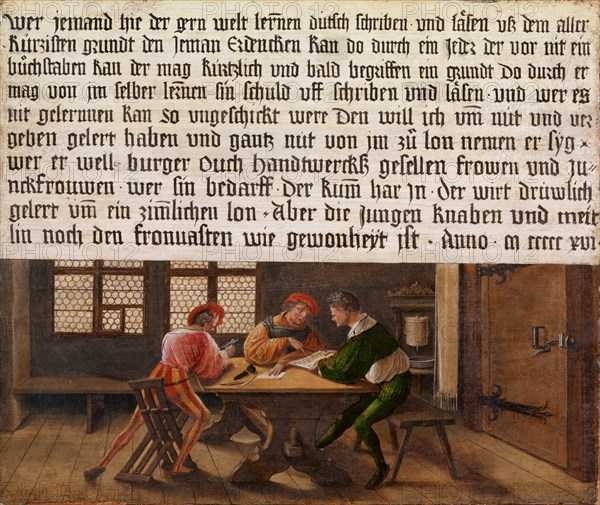 wer jemand hie der gern welt lernen dutsch schriben und läsen uß dem aller
kürzisten grundt den jeman erdencken kan do durch ein jeder der vor nit ein
bůchstaben kan der mag kürtzlich und bald begriffen ein grundt do durch er
mag von jm selber lernen sin schuld uff schriben und läsen und wer es
nit gelernnen kan so ungeschickt were den will ich um nüt und ver
geben gelert haben und gantz nüt von jm zů lon nemen er syg
wer er well burger ouch handtwercks gesellen frowen und ju
nckfrouwen wer sin bedarff der kum har jn der wirt drüwlich
gelert um ein zimlichen lon · aber die jungen knaben und meit
lin noch den fronuasten wie gewonheyt ist · anno · m ccccc xvi